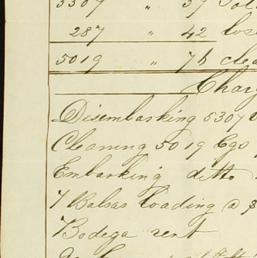 5307 " 37
287 " 42 loss
5019 " 76 clea
Charg
Disembarking 5307
Cleaning 5019 Cgs
Embarking ditto
7 Balsas loading @ $
Bodega rent